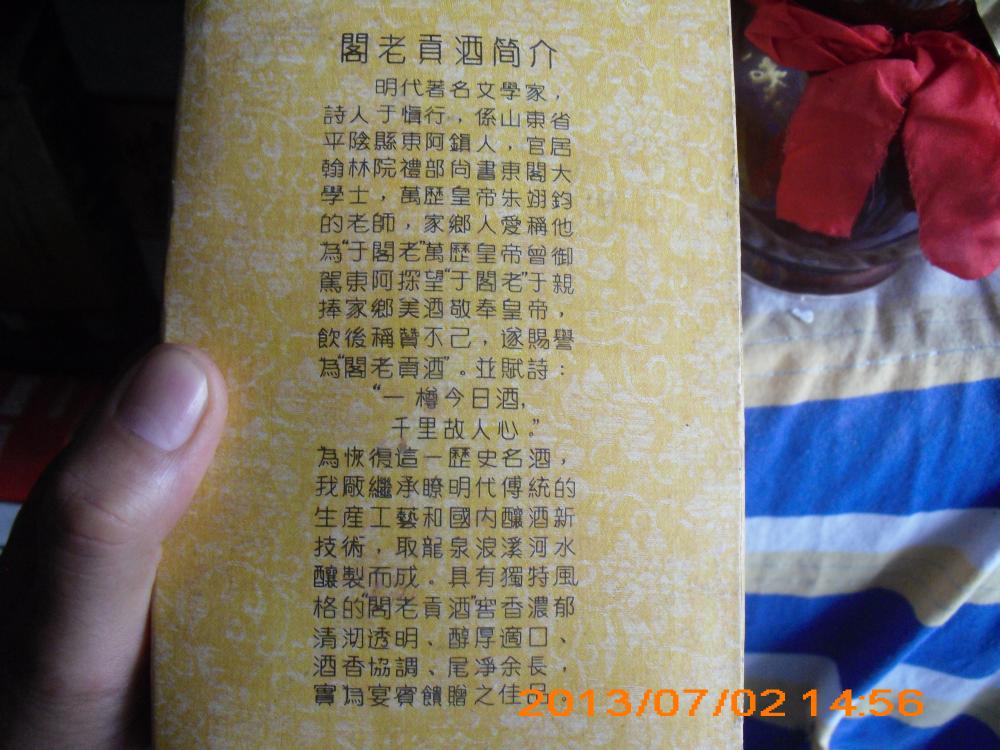 閣老貢酒简介
明代著名文學家，
詩人于慎行，係山東省
平陰縣東阿鎮人，官居
翰林院禮部尚書東閣大
學士，萬歷皇帝朱翊鈞
的老師，家鄉人愛稱他
為“于閣老”萬歷皇帝曾御
駕東阿探望“于閣老”于親
捧家鄉美酒敬奉皇帝，
飲後稱贊不己，遂賜譽
為“閣老貢酒”。並賦詩：
“一樽今日酒，
千里故人心。”
為恢復這一歷史名酒，
我厰繼承瞭明代傳統的
生産工藝和國内釀酒新
技術，取龍泉浪溪河水
釀製而成。具有獨特風
格的“閣老貢酒”窖香濃郁
清沏透明、醇厚適口、
酒香協調、尾凈余長，
實為宴賓饋贈之佳品。
2013/07/02 14:56